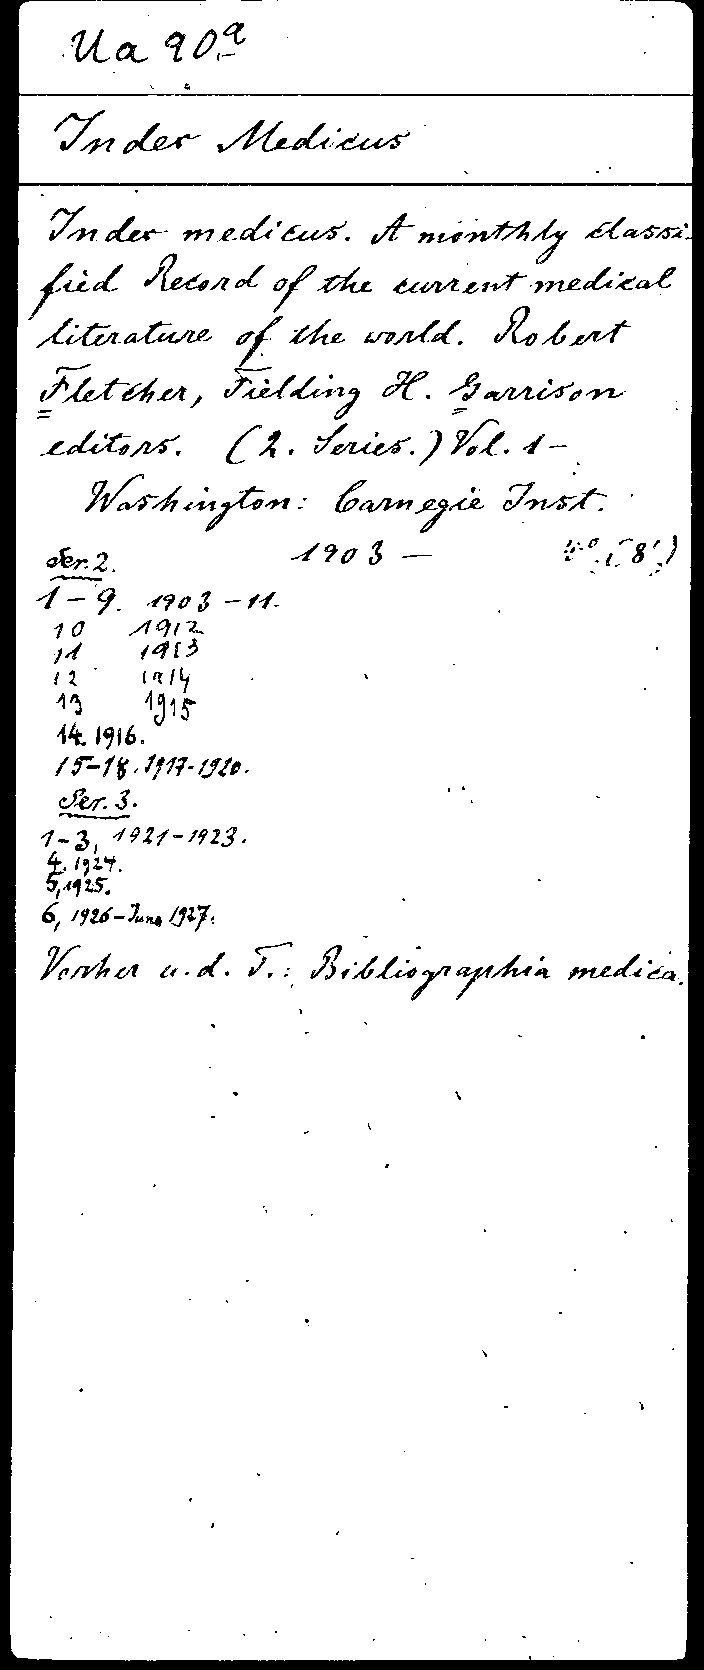 Ua 90a
Index Medicus
Index medicus. A monthly classi-
fied Record of the current medical
literature of the world. Robert
Fletcher, Fielding H. Garrison
editors. (2. Series.) Vol. 1 –
Washington: Carnegie Inst.
1903 — 4°. (8°.)
Ser. 2.
1 – 9. 1903 – 11.
10 1912
11 1913
12 1914
13 1915
14. 1916.
15–18. 1917–1920.
Ser. 3.
1–3, 1921–1923.
4. 1924.
5, 1925.
6, 1926–June 1927.
Vorher u. d. T.: Bibliographia medica.